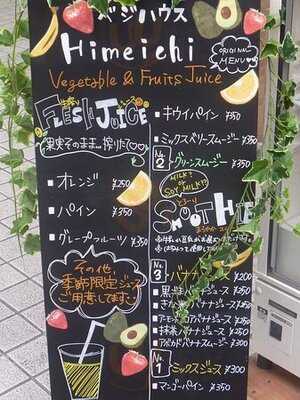 ベジハウス
Himeichi
Vegetable & Fruits Juice
ORIGINAL
MENU
FLESH JUICE
果実そのまま 搾りたて
オレンジ ¥250
パイン ¥350
グレープフルーツ ¥350
その他、
季節限定ジュース
ご用意してます…
キウイパイン ¥350
ミックスベリースムージー ¥350
No.2 グリーンスムージー ¥350
MILK? or
SOY MILK??
とろ〜り
SMOOTHIE
No.3 バナナ ¥200
黒ごまバナナジュース ¥250
きな粉バナナジュース ¥250
アーモンドココアバナナジュース ¥250
抹茶バナナジュース ¥250
アボカドバナナスムージー ¥350
No.1 ミックスジュース ¥300
マンゴーパイン ¥350